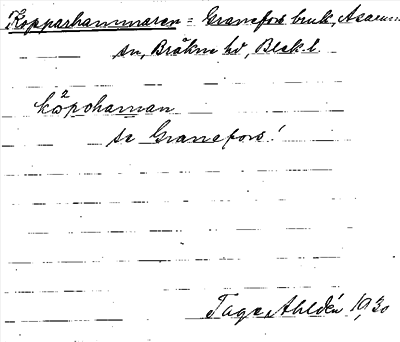 Kopparhammaren = Granefors bruk, Asarum
sn, Bräkne hd, Blek. l.
kö²pohaman
se Granefors!
Tage Ahldén 1930